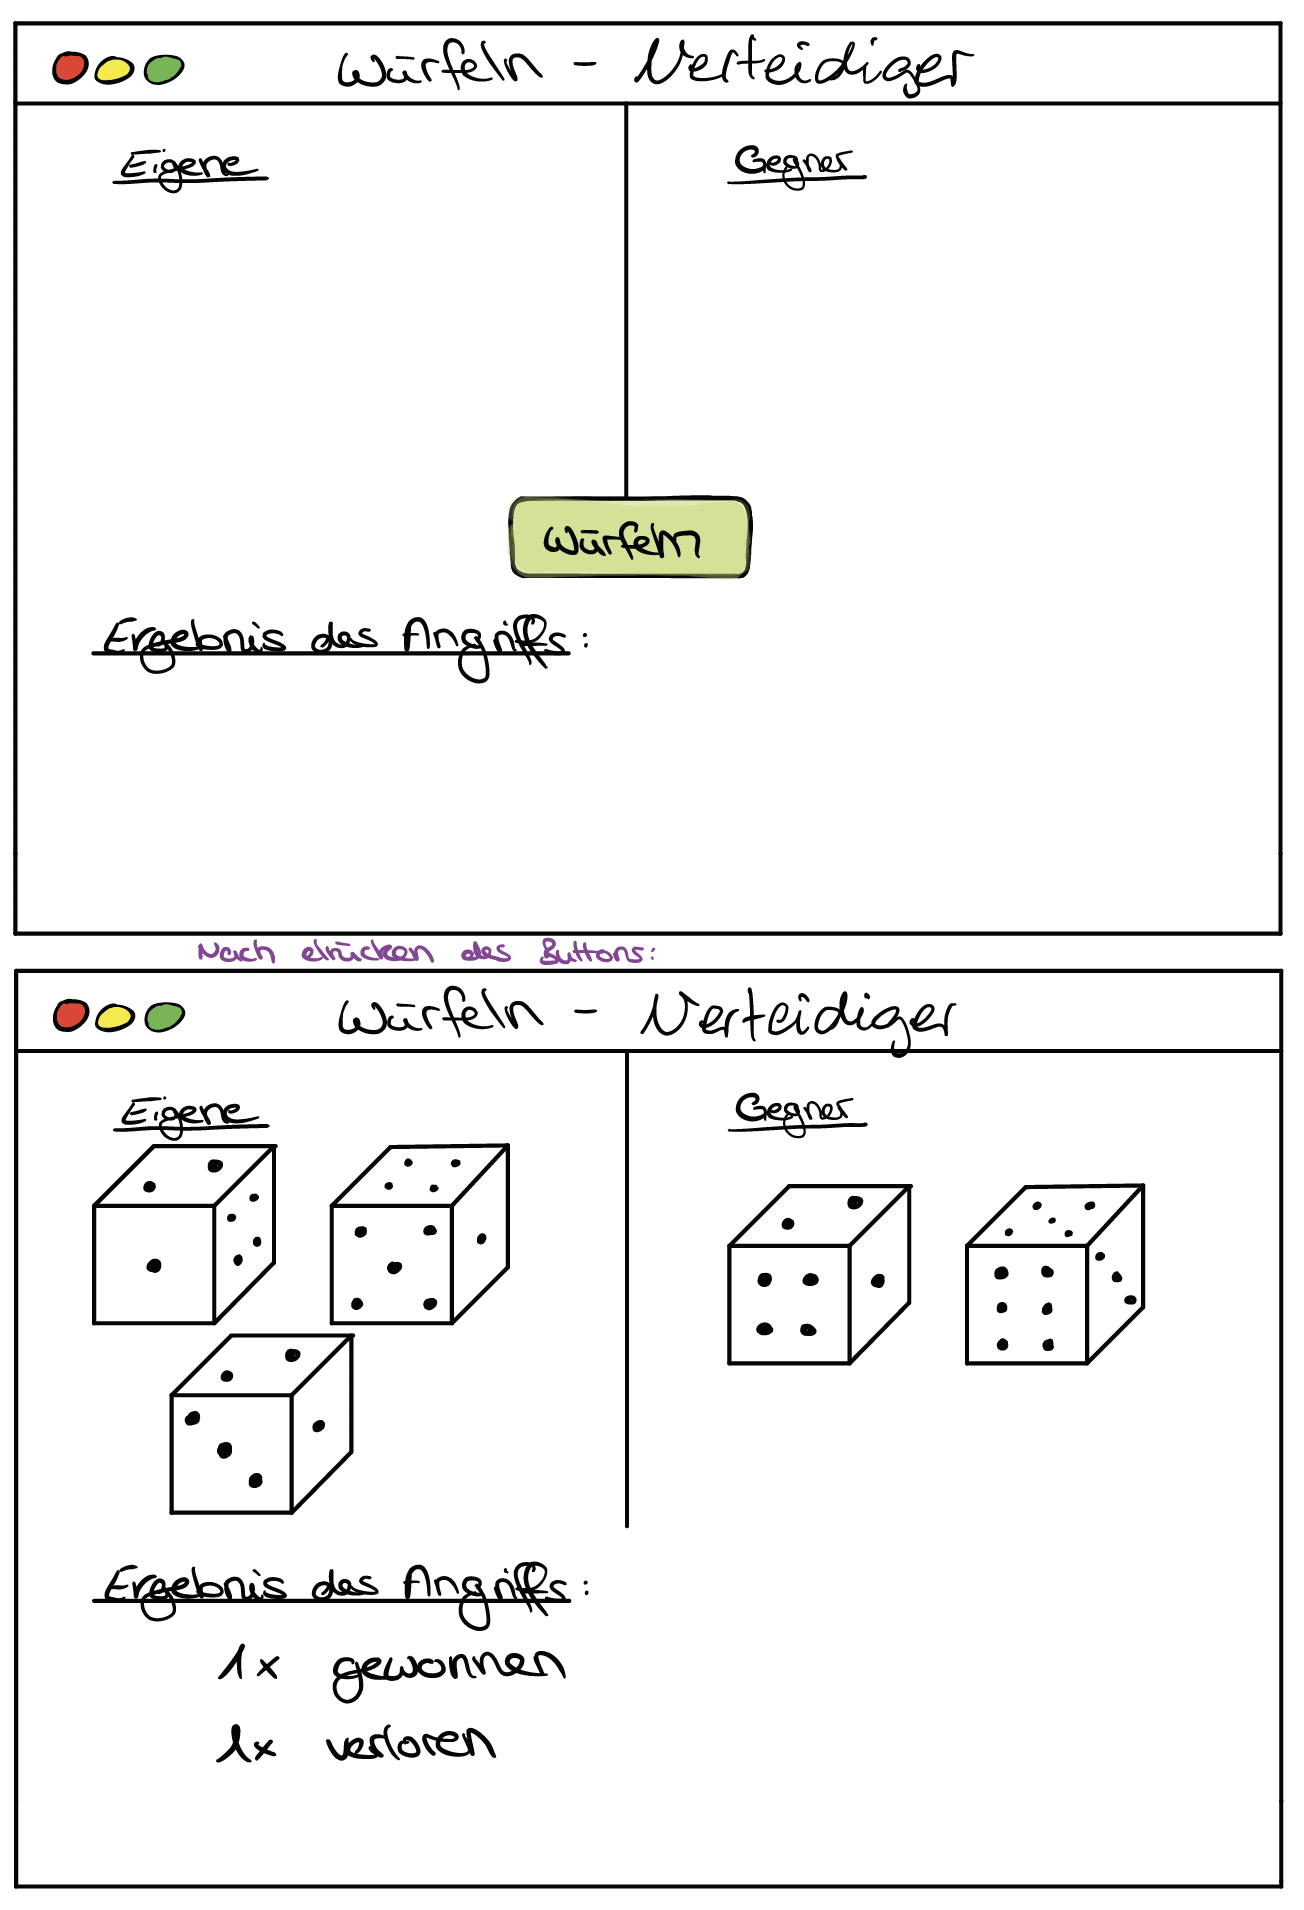 Würfeln - Verteidiger
Eigene
Gegner
Würfeln
Ergebnis des Angriffs:
Nach drücken des Buttons:
Würfeln - Verteidiger
Eigene
Gegner
Ergebnis des Angriffs:
1x gewonnen
1x verloren